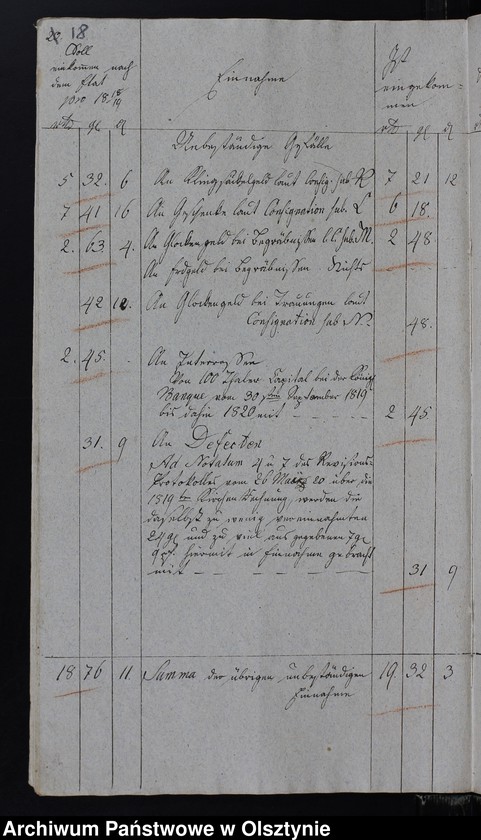 18
Soll
einkommen nach
dem Etat
pro 18 18/19
Einnahme
Ist
eingekom=
men
rtl. gl. d.
rtl. gl. d.
Unbeständige Gefälle
5 32. 6 An Klingsäckelgeld laut Consig. sub K 7 21 12
7 41 16 An Geschenke laut Consignation sub. L 6 18.
2. 63 4. An Glockengeld bei Begräbnissen l. C. sub. M. 2 48
An Erdgeld bei Begräbnissen Nichts
42 12. An Glockengeld bei Trauungen laut
Consignation sub N. 48.
2. 45. An Interessen
Von 100 Thaler Capital bei der Königl
Banque vom 30sten September 1819
bis dahin 1820 mit 2 45
31. 9 An Defecten
Ad Notatum 4 u 7 des Revisions
Protokolles vom 26 März 20 über die
1819ter Kirchen Rechnung, werden die
daselbst zu wenig vereinnahmten
24 gl und zu viel ausgegebenen 7 gl
9 pf. hiermit in Einnahme gebracht
mit 31 9
18 76 11. Summa der übrigen unbeständigen 19. 32 3
Einnahme
Archiwum Państwowe w Olsztynie